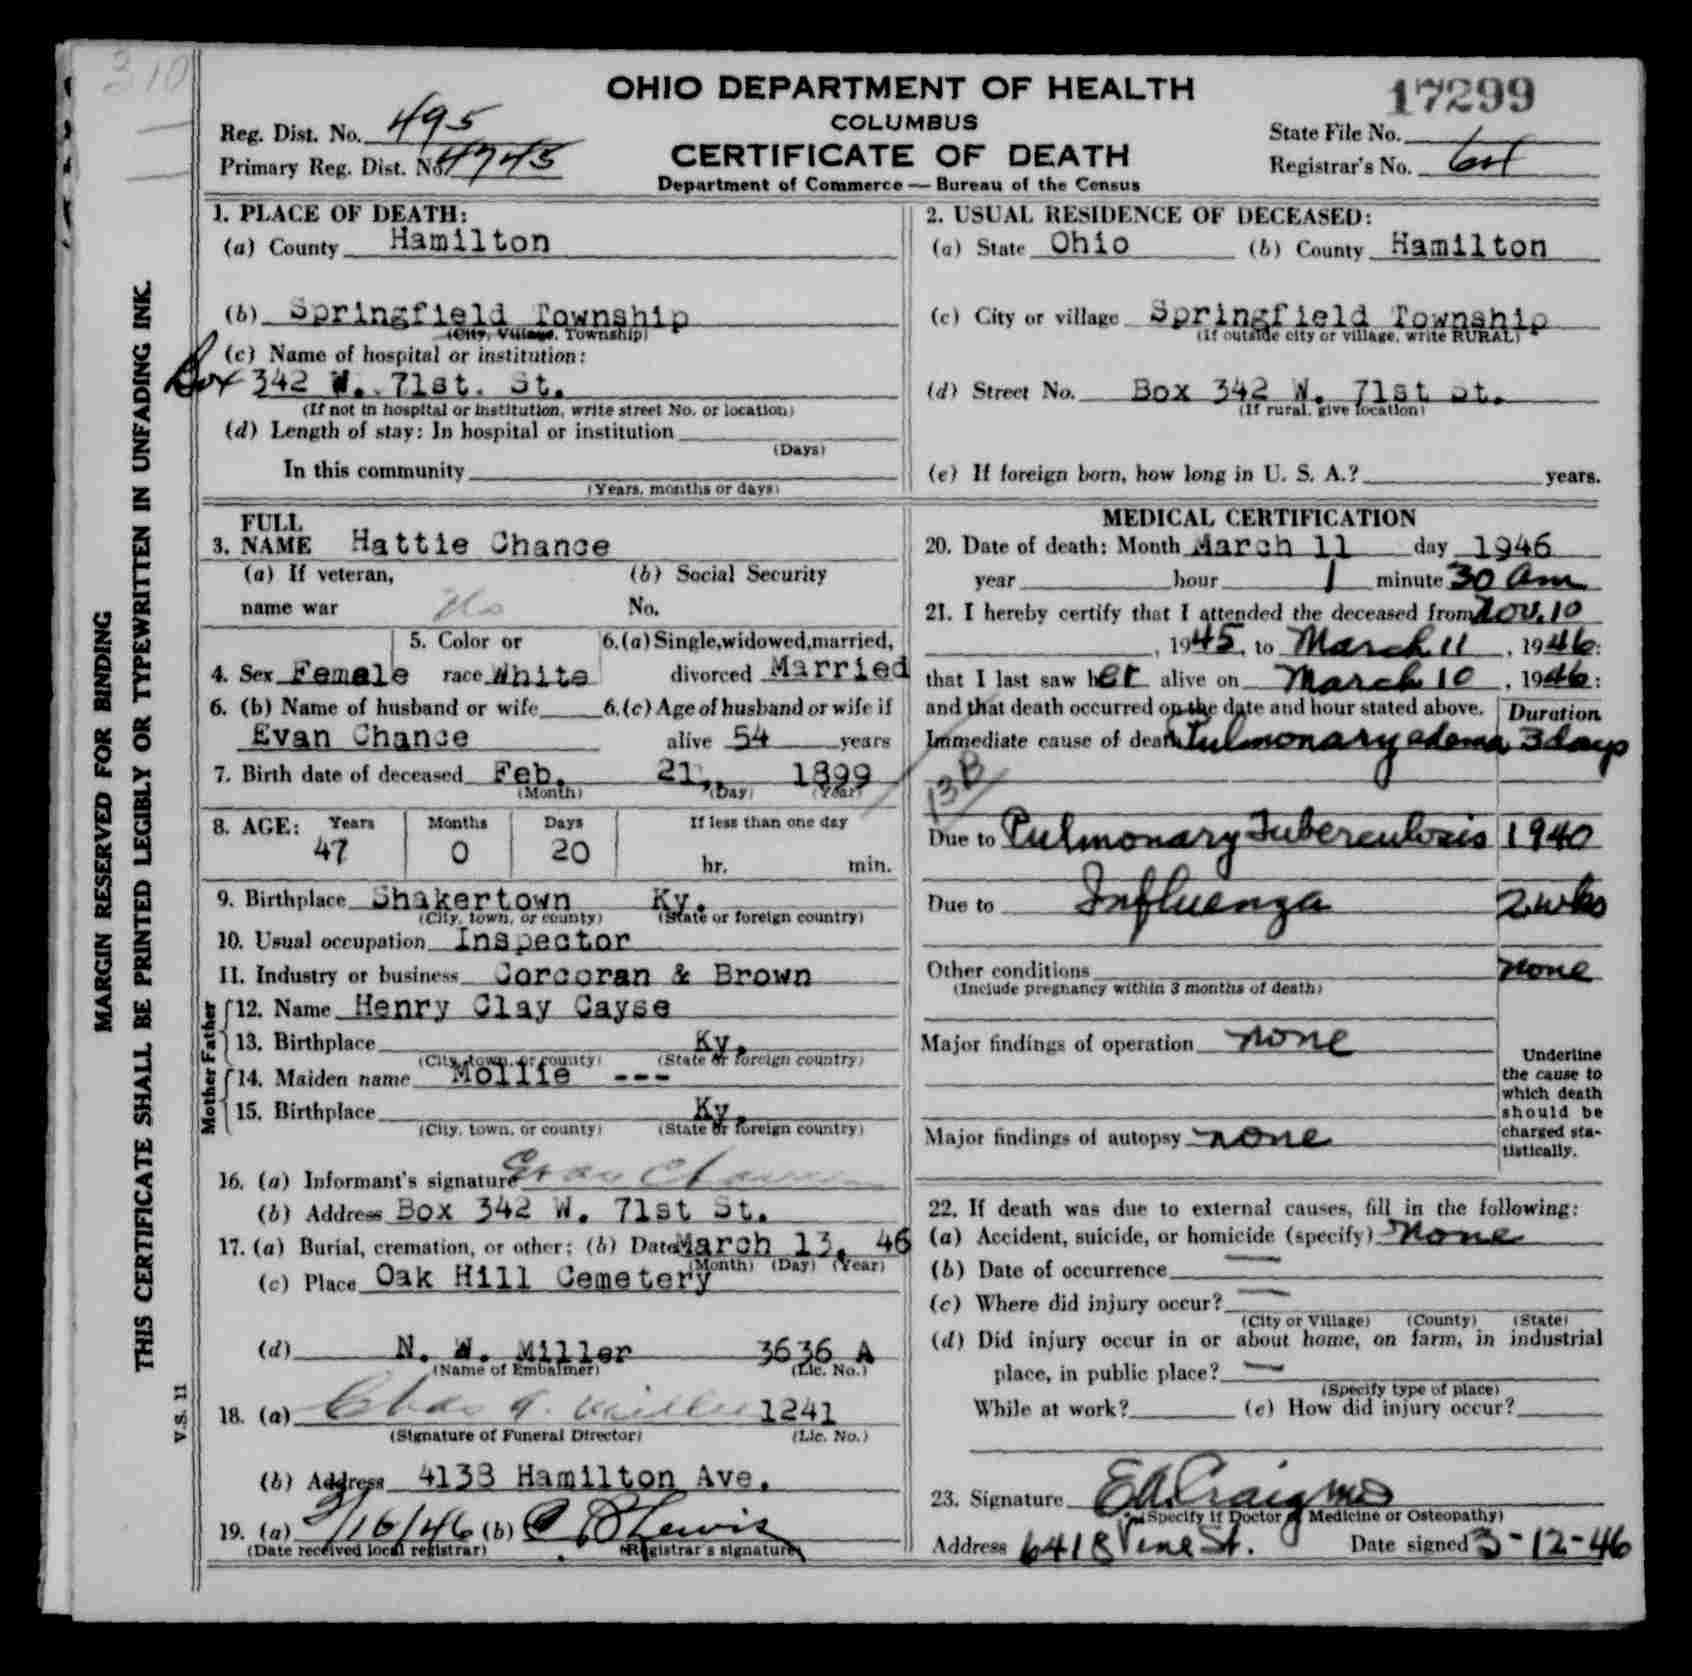 310
OHIO DEPARTMENT OF HEALTH
17299
COLUMBUS
CERTIFICATE OF DEATH
Department of Commerce — Bureau of the Census
Reg. Dist. No. 495
Primary Reg. Dist. No. 4745
State File No.
Registrar's No.
MARGIN RESERVED FOR BINDING
THIS CERTIFICATE SHALL BE PRINTED LEGIBLY OR TYPEWRITTEN IN UNFADING INK.
V.S. 11
1. PLACE OF DEATH:
(a) County Hamilton
(b) Springfield Township
(City, Village, Township)
(c) Name of hospital or institution:
Box 342 W. 71st. St.
(If not in hospital or institution, write street No. or location)
(d) Length of stay: In hospital or institution
(Days)
In this community
(Years, months or days)
2. USUAL RESIDENCE OF DECEASED:
(a) State Ohio (b) County Hamilton
(c) City or village Springfield Township
(If outside city or village, write RURAL)
(d) Street No. Box 342 W. 71st St.
(If rural, give location)
(e) If foreign born, how long in U. S. A.? years.
3. FULL NAME Hattie Chance
(a) If veteran, name war No
(b) Social Security No.
4. Sex Female
5. Color or race White
6. (a) Single, widowed, married, divorced Married
6. (b) Name of husband or wife Evan Chance
6. (c) Age of husband or wife if alive 54 years
7. Birth date of deceased Feb. 21, 1899
(Month) (Day) (Year)
8. AGE: Years 47 Months 0 Days 20 If less than one day hr. min.
9. Birthplace Shakertown Ky.
(City, town, or county) (State or foreign country)
10. Usual occupation Inspector
11. Industry or business Corcoran & Brown
Father
12. Name Henry Clay Cayse
13. Birthplace Ky.
(City, town, or county) (State or foreign country)
Mother
14. Maiden name Mollie ---
15. Birthplace Ky.
(City, town, or county) (State or foreign country)
16. (a) Informant's signature Evan Chance
(b) Address Box 342 W. 71st St.
17. (a) Burial, cremation, or other; (b) Date March 13, 46
(Month) (Day) (Year)
(c) Place Oak Hill Cemetery
(d) N. W. Miller 3636 A
(Name of Embalmer) (Lic. No.)
18. (a) Chas A. Miller 1241
(Signature of Funeral Director) (Lic. No.)
(b) Address 4138 Hamilton Ave.
19. (a) 3/16/46 (b) Lewis
(Date received local registrar) (Registrar's signature)
MEDICAL CERTIFICATION
20. Date of death: Month March 11 day 1946
year hour 1 minute 30 am
21. I hereby certify that I attended the deceased from Nov. 10
, 1945, to March 11, 1946:
that I last saw her alive on March 10, 1946:
and that death occurred on the date and hour stated above.
Duration
Immediate cause of death Pulmonary edema 3 days
13B
Due to Pulmonary Tuberculosis 1940
Due to Influenza 2 wks
Other conditions none
(Include pregnancy within 3 months of death)
Major findings of operation none
Major findings of autopsy none
Underline the cause to which death should be charged statistically.
22. If death was due to external causes, fill in the following:
(a) Accident, suicide, or homicide (specify) None
(b) Date of occurrence —
(c) Where did injury occur? —
(City or Village) (County) (State)
(d) Did injury occur in or about home, on farm, in industrial
place, in public place? —
(Specify type of place)
While at work? (e) How did injury occur?
23. Signature E.A. Craig MD
(Specify if Doctor of Medicine or Osteopathy)
Address 6418 Vine St. Date signed 3-12-46